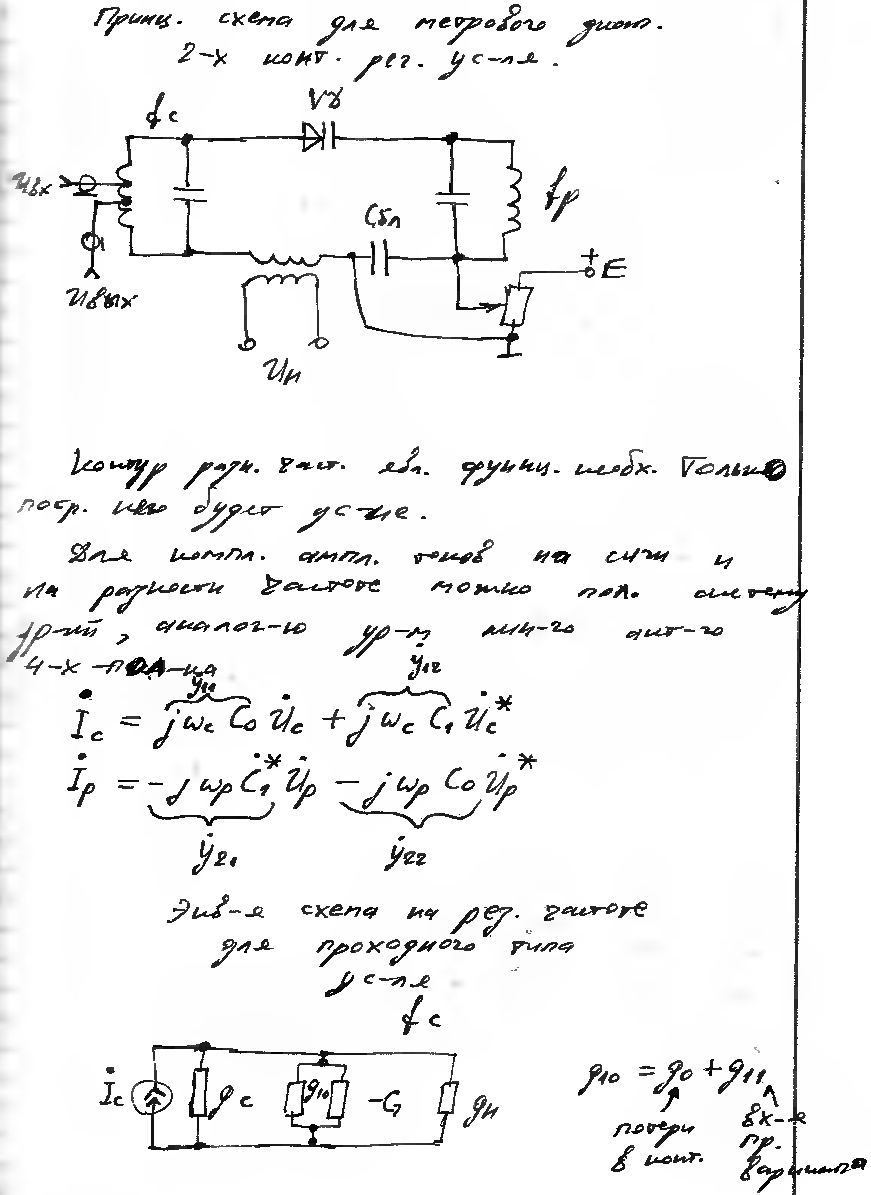 Принц. схема для метрового диап.
2-х конт. рег. ус-ля.
fс Vд
Uвх fр
Cбл
+ E
Uвых
Uн
Контур разн. част. явл. функц. необх. Только
поср. него будет ус-ие.
Для компл. ампл. токов на сигн и
на разности частоте можно пол. систему
ур-ий, аналог-ю ур-м лин-го акт-го
4-х -пол-ка
ẏ11 ẏ12
İc = jωc C0 U̇c + jωc Ċ1 U̇c*
İp = -jωp Ċ1* U̇p - jωp C0 U̇p*
ẏ21 ẏ22
Экв-я схема на рез. частоте
для проходного типа
ус-ля
fс
İc gc g10 -G gн g10 = g0 + g11
потери вх-я
в конт. пр.
варикапа